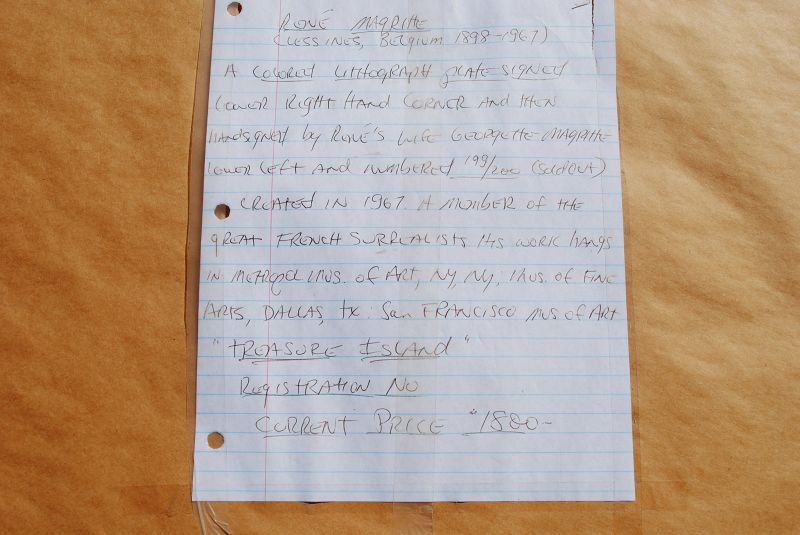 RENÉ MAGRITTE
(LESSINES, BELGIUM 1898-1967)
A COLORED LITHOGRAPH PLATE SIGNED
LOWER RIGHT HAND CORNER AND THEN
HANDSIGNED by RENÉ'S WIFE GEORGETTE MAGRITTE
LOWER LEFT AND NUMBERED 199/200 (SOLD OUT)
CREATED IN 1967. A MEMBER OF THE
GREAT FRENCH SURREALISTS HIS WORK HANGS
IN METROPOL MUS. OF ART, NY, NY, MUS. OF FINE
ARTS, DALLAS, TX. SAN FRANCISCO MUS OF ART
"TREASURE ISLAND"
REGISTRATION NO
CURRENT PRICE "1800-